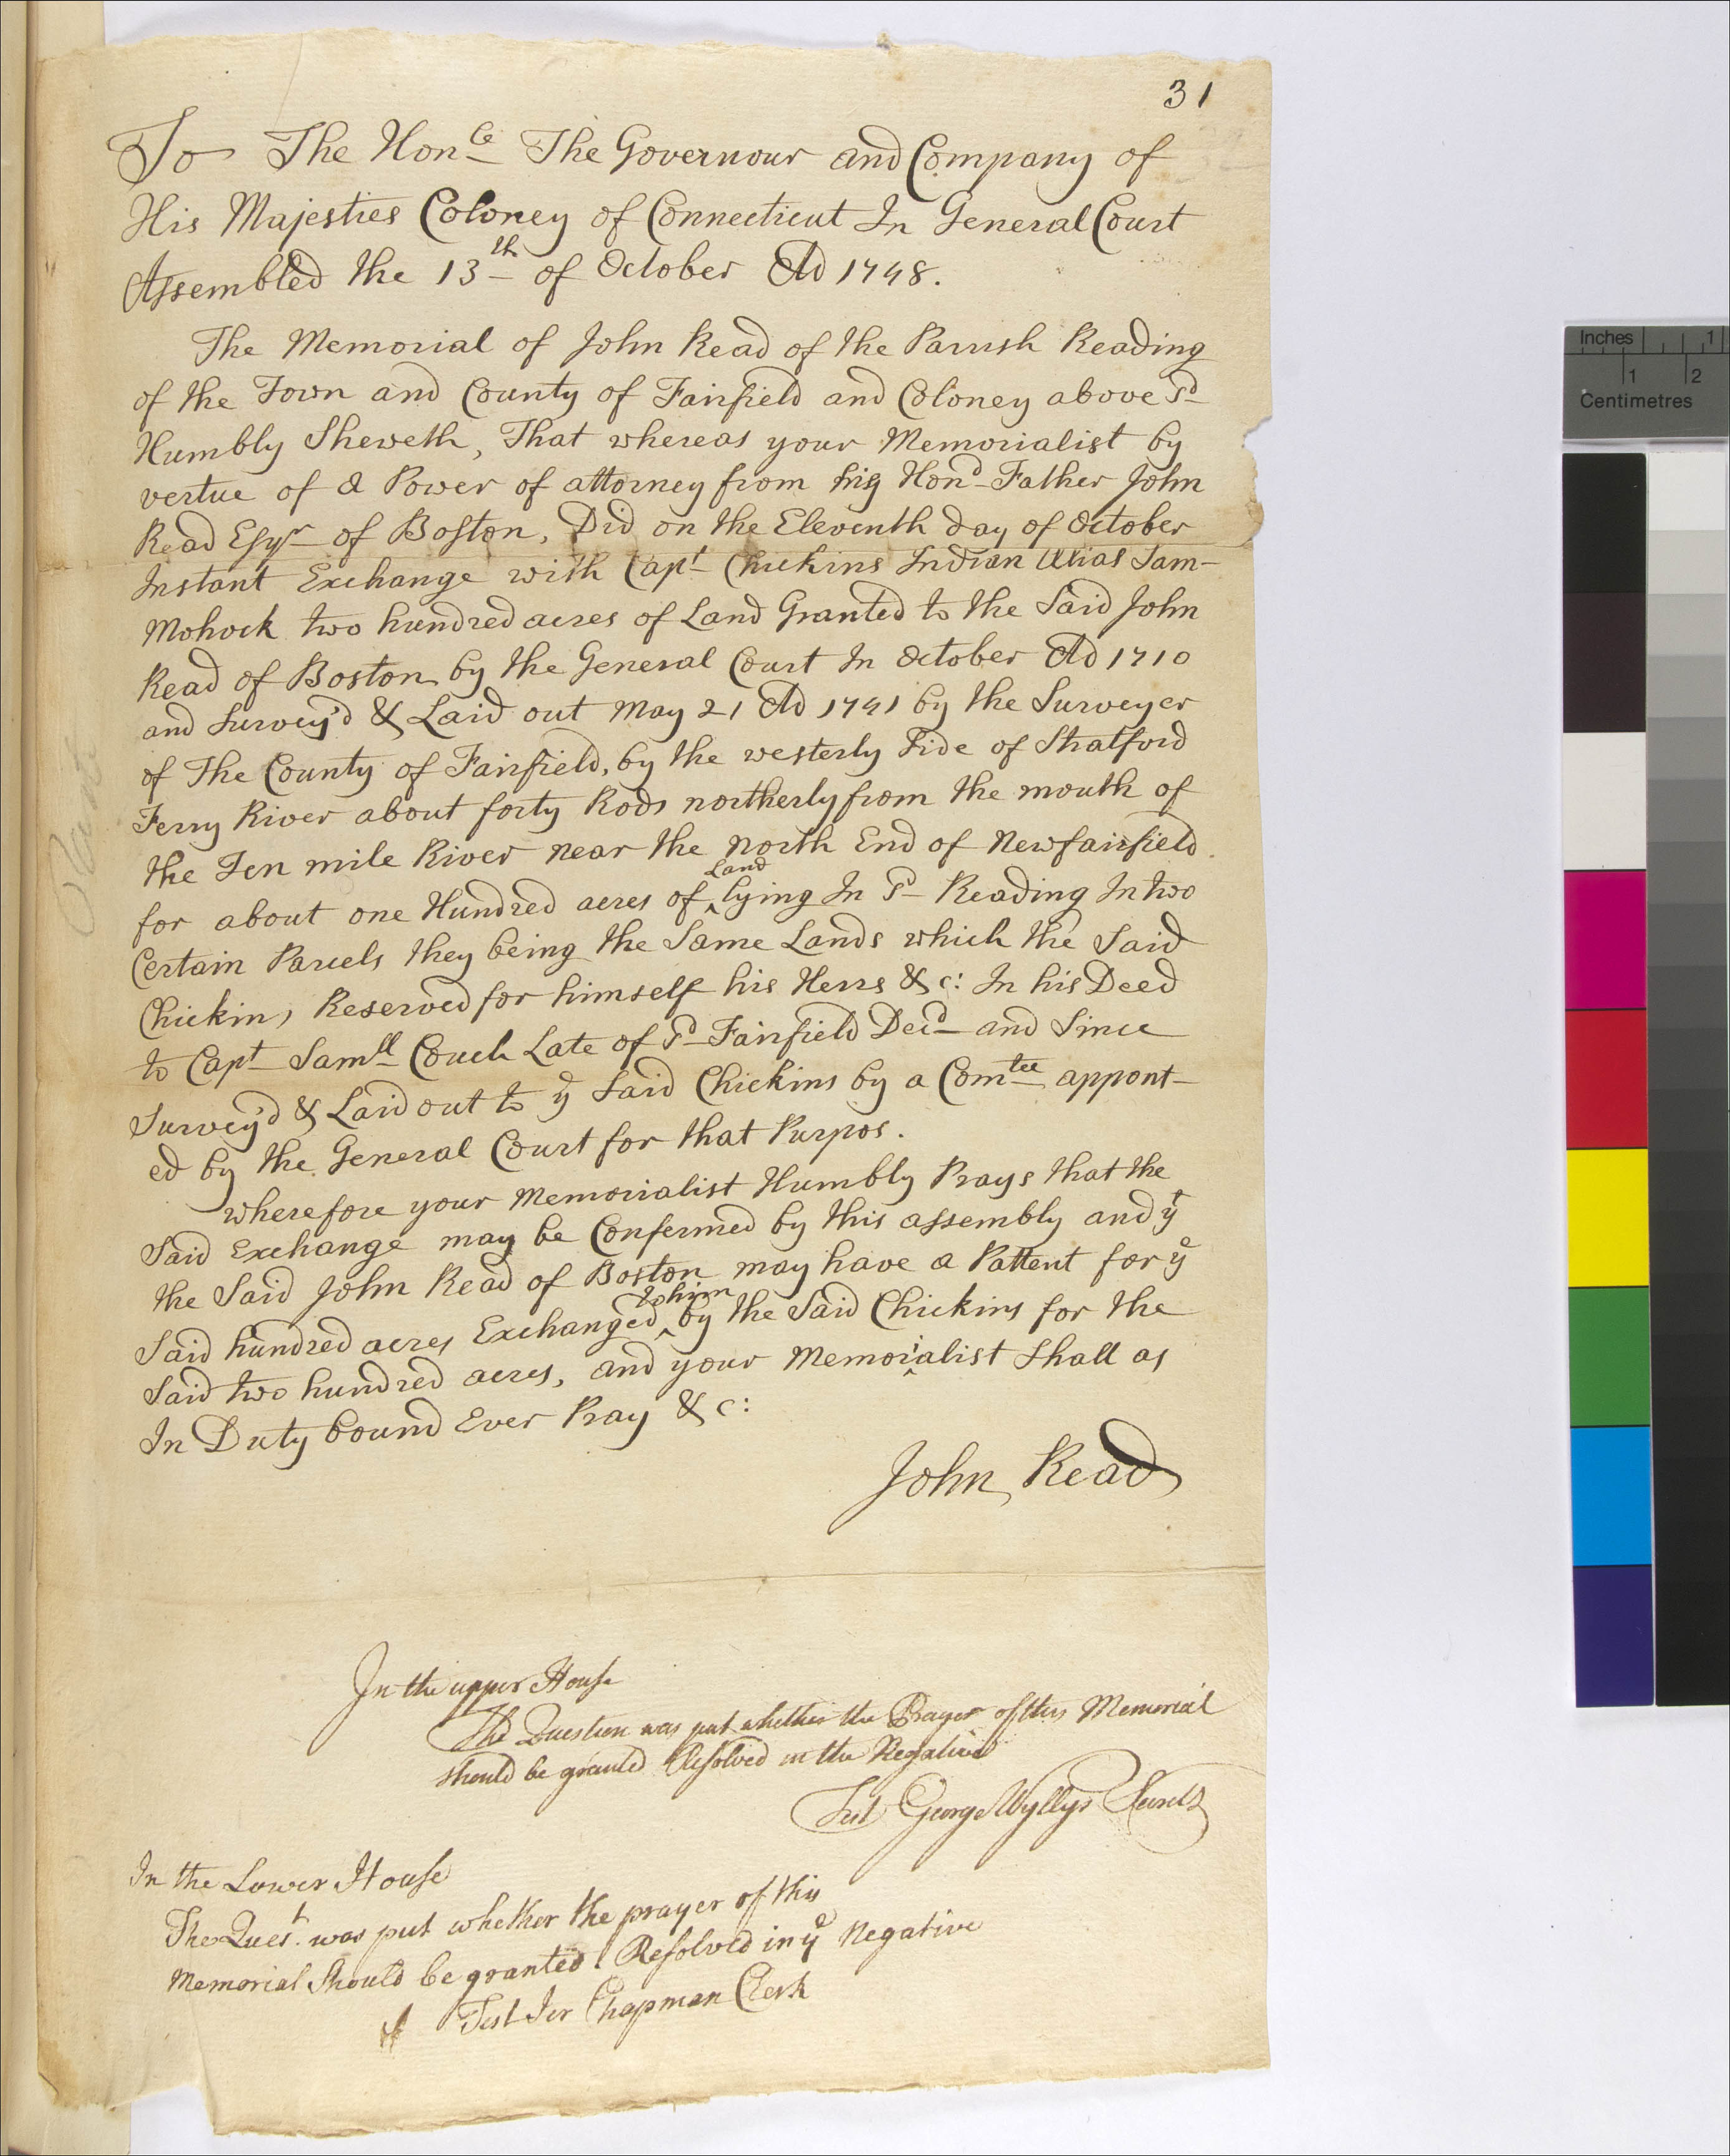 31
To The Honle The Governour and Company of
His Majesties Coloney of Connecticut In General Court
Assembled the 13th of October AD 1748.
The Memorial of John Read of the Parrish Reading
of the Town and County of Fairfield and Coloney above sd
Humbly Sheweth, That whereas your Memorialist by
vertue of a Power of attorney from his Hond Father John
Read Esqr of Boston, Did on the Eleventh day of October
Instant Exchange with Capt Chickins Indian Alias Sam-
Mohock two hundred acres of Land Granted to the Said John
Read of Boston by the General Court In October AD 1710
and Survey'd & Laid out May 21 AD 1741 by the Surveyer
of The County of Fairfield, by the westerly Side of Stratford
Ferry River about forty Rods northerly from the mouth of
the Ten mile River near the North End of Newfairfield
for about one Hundred acres of ^Land lying In sd Reading In two
Certain Parcels they being the Same Lands which the Said
Chickins Reserved for himself his Heirs &c: In his Deed
to Capt Samll Couch Late of sd Fairfield Decd and Since
Survey'd & Laid out to ye Said Chickins by a Comtee appont-
ed by the General Court for that Purpos.
wherefore your Memorialist Humbly Prays that the
Said Exchange may be Confermed by this assembly and yt
the Said John Read of Boston may have a Pattent for ye
Said hundred acres Exchanged ^to him by the Said Chickins for the
Said two hundred acres, and your Memorialist Shall as
In Duty bound Ever Pray &c:
John Read
In the upper House
The Question was put whether the Prayer of this Memorial
should be granted Resolved in the Negative
Test George Wyllys Secrety
In the Lower House
The Quest. was put whether the prayer of this
Memorial Should be granted. Resolved in ye Negative
Test Jer Chapman Clerk
Inches 1
1 2
Centimetres